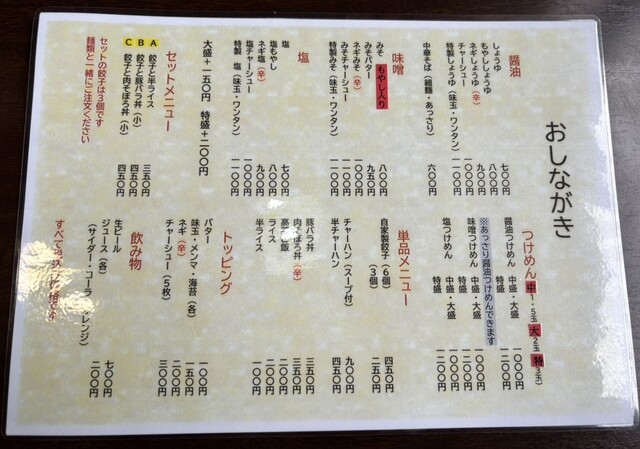 おしながき
醤油
しょうゆ 七〇〇円
もやししょうゆ 八〇〇円
ネギしょうゆ(辛) 九〇〇円
チャーシュー 一〇〇〇円
特製しょうゆ(味玉・ワンタン) 一一〇〇円
中華そば(細麺・あっさり) 六〇〇円
味噌 もやし入り
みそ 八〇〇円
みそバター 九五〇円
ネギみそ(辛) 一〇〇〇円
みそチャーシュー 一一〇〇円
特製みそ(味玉・ワンタン)
塩
塩 七〇〇円
塩もやし 八〇〇円
ネギ塩(辛) 九〇〇円
塩チャーシュー 一〇〇〇円
特製 塩(味玉・ワンタン) 一一〇〇円
大盛+一五〇円 特盛+二〇〇円
セットメニュー
A 餃子と半ライス 三五〇円
B 餃子と豚バラ丼(小) 四五〇円
C 餃子と肉そぼろ丼(小) 四五〇円
セットの餃子は3個です
麺類と一緒にご注文ください
つけめん 中1.5玉 大2玉 特3玉)
醤油つけめん 中盛・大盛 一〇〇〇円
特盛 一二〇〇円
※あっさり醤油つけめんできます
味噌つけめん 中盛・大盛 一〇〇〇円
特盛 一二〇〇円
塩つけめん 中盛・大盛 一〇〇〇円
特盛 一二〇〇円
単品メニュー
自家製餃子(6個) 四五〇円
(3個) 二五〇円
チャーハン(スープ付) 九〇〇円
半チャーハン 四五〇円
豚バラ丼 三五〇円
肉そぼろ丼(辛) 三五〇円
高菜ご飯 三〇〇円
ライス 二〇〇円
半ライス 一〇〇円
トッピング
バター 一〇〇円
味玉・メンマ・海苔(各) 一五〇円
ネギ(辛) 二〇〇円
チャーシュー(5枚) 三〇〇円
飲み物
生ビール 七〇〇円
ジュース(各) 二〇〇円
(サイダー・コーラ・オレンジ)
すべて税込価格です